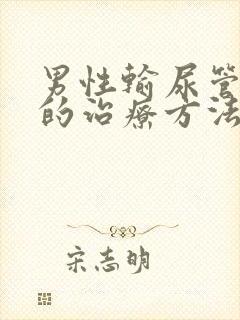 男性输尿管
的治疗方法
宋志明